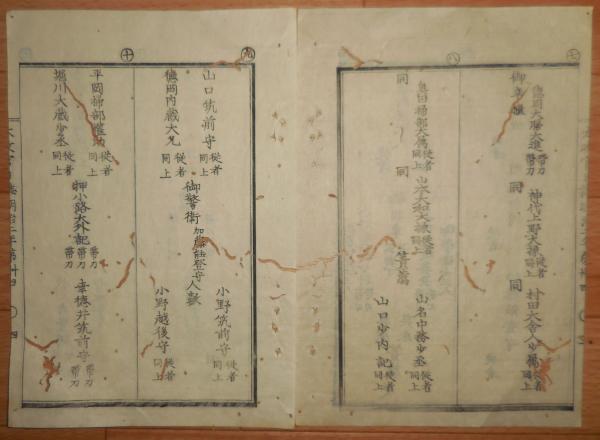 七
徳岡大膳大進 帯刀 帯刀
御
同
神竹上野大掾 従者 同上
同
村田大舎人少属 従者 同上
八
同
島田掃部大属 従者 同上
同
山本大和大掾 従者 同上
山名中務少丞 従者 同上
山口少内記 従者 同上
九
山口筑前守 従者 同上
小野筑前守 従者 同上
徳岡内蔵大允 従者 同上
御警衛 加藤能登守人数
小野越後守 従者 同上
十
平岡掃部権助 従者 同上
押小路大外記 帯刀 帯刀
幸徳井筑前守 帯刀
堀川大蔵少丞 従者 同上